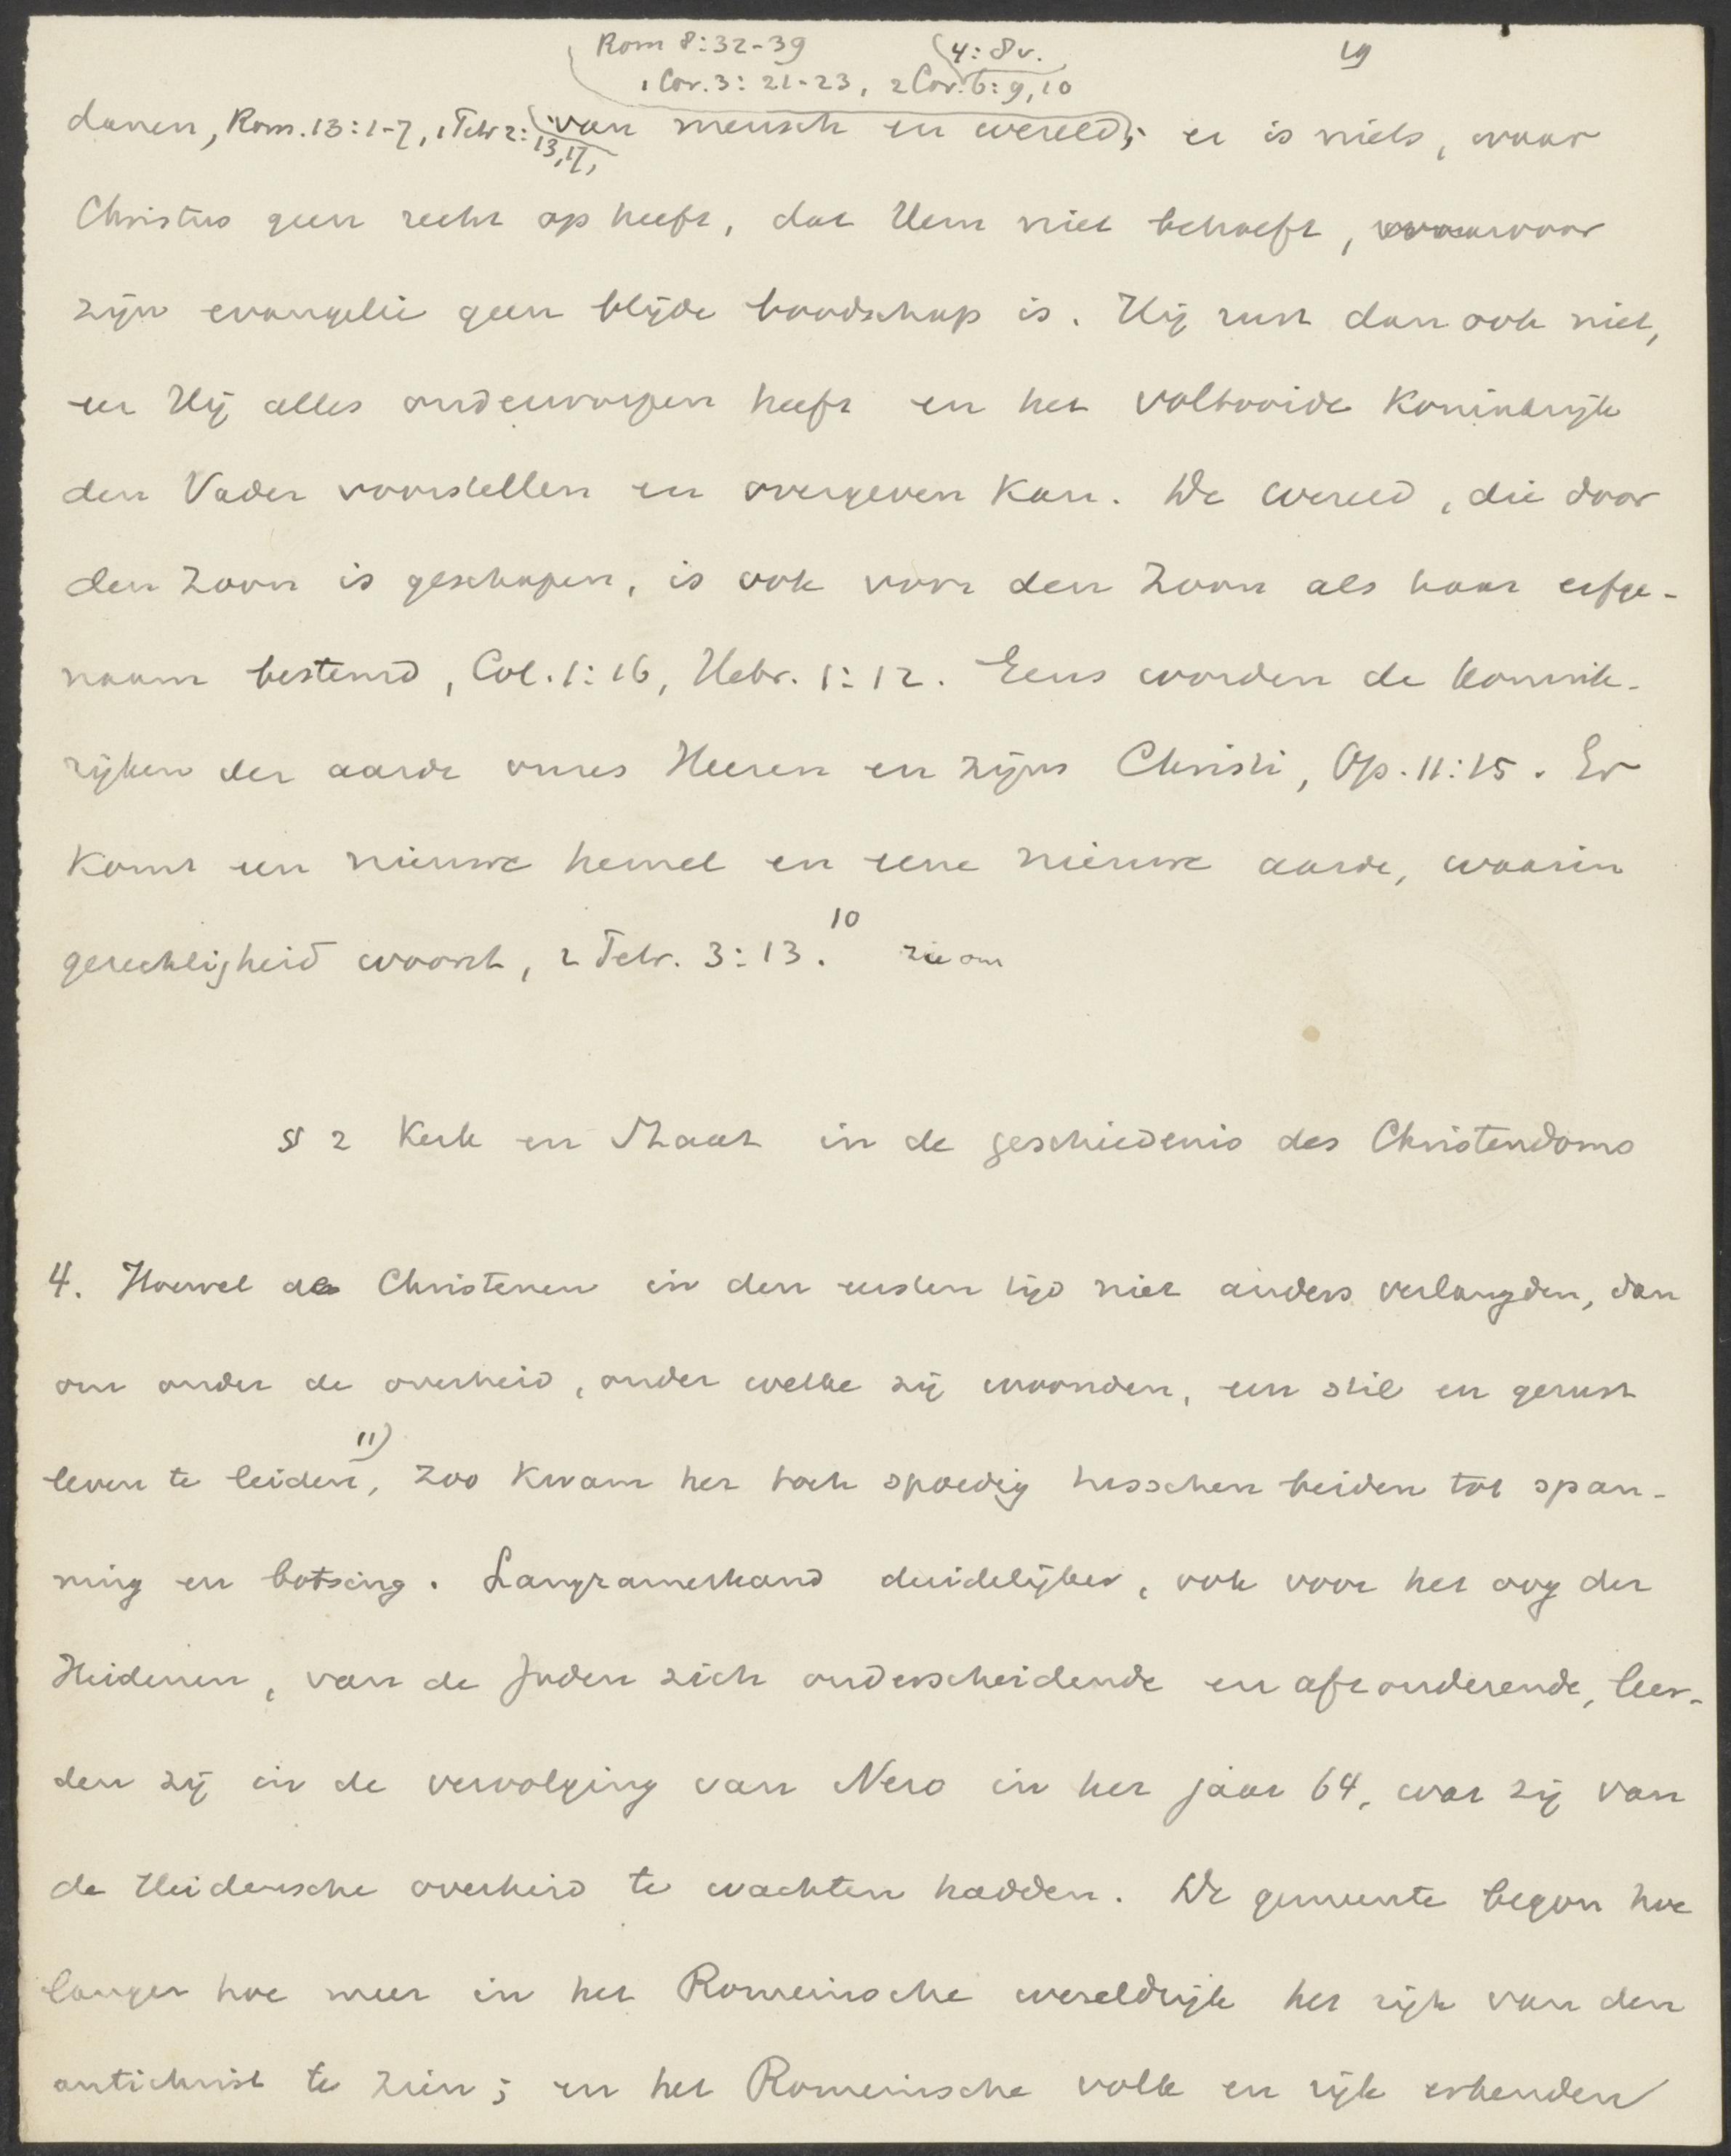 19
Rom 8:32-39 4:8v.
1 Cor. 3:21-23, 2 Cor. 6:9,10
danen, Rom. 13:1-7, 1 Petr 2:13,17, van mensch en wereld; er is niets, waar
Christus geen recht op heeft, dat Hem niet behoeft, waarvoor
zijn evangelie geen blijde boodschap is. Hij rust dan ook niet,
eer Hij alles onderworpen heeft en het voltooide Koninkrijk
den Vader voorstellen en overgeven kan. De wereld, die door
den Zoon is geschapen, is ook voor den Zoon als haar erfge-
naam bestemd, Col. 1:16, Hebr. 1:12. Eens worden de konink-
rijken der aarde onzes Heeren en zijns Christi, Op. 11:15. Er
komt een nieuwe hemel en eene nieuwe aarde, waarin
gerechtigheid woont, 2 Petr. 3:13. 10 zie om
§ 2 Kerk en Staat in de geschiedenis des Christendoms
4. Hoewel de Christenen in den eersten tijd niet anders verlangden, dan
om onder de overheid, onder welke zij woonden, een stil en gerust
leven te leiden 11), zoo kwam het toch spoedig tusschen beiden tot span-
ning en botsing. Langzamerhand duidelijker, ook voor het oog der
Heidenen, van de Joden zich onderscheidende en afzonderende, leer-
den zij in de vervolging van Nero in het jaar 64, wat zij van
de Heidensche overheid te wachten hadden. De gemeente begon hoe
langer hoe meer in het Romeinsche wereldrijk het rijk van den
antichrist te zien; en het Romeinsche volk en rijk erkenden